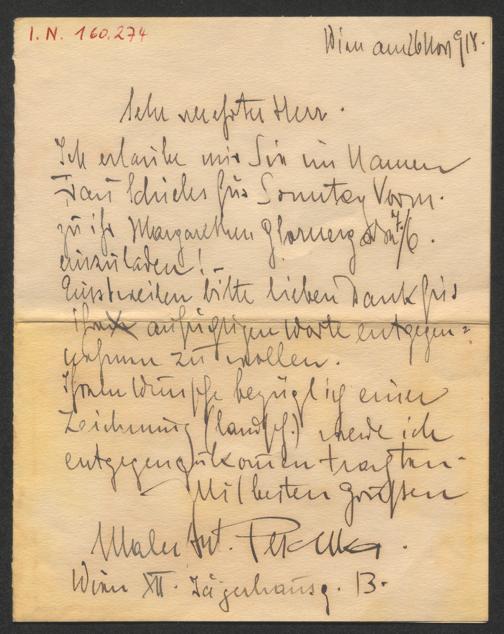 I. N. 160.274
Wien am 26 Nov 918.
Sehr verehrter Herr.
Ich erlaube mir Sie im Namen
Frau Schiele für Sonntag Vorm.
zu ihr Margarethen
einzuladen! –
Einstweilen bitte lieben Dank für
Ihre aufrichtigen Worte entgegen=
nehmen zu wollen.
Ihrem Wunsche bezüglich einer
Zeichnung (landsch.) werde ich
entgegenzukommen trachten –
Mit besten Grüssen
Maler Ant. Peschka.
Wien XII. Jägerhausg. 13.